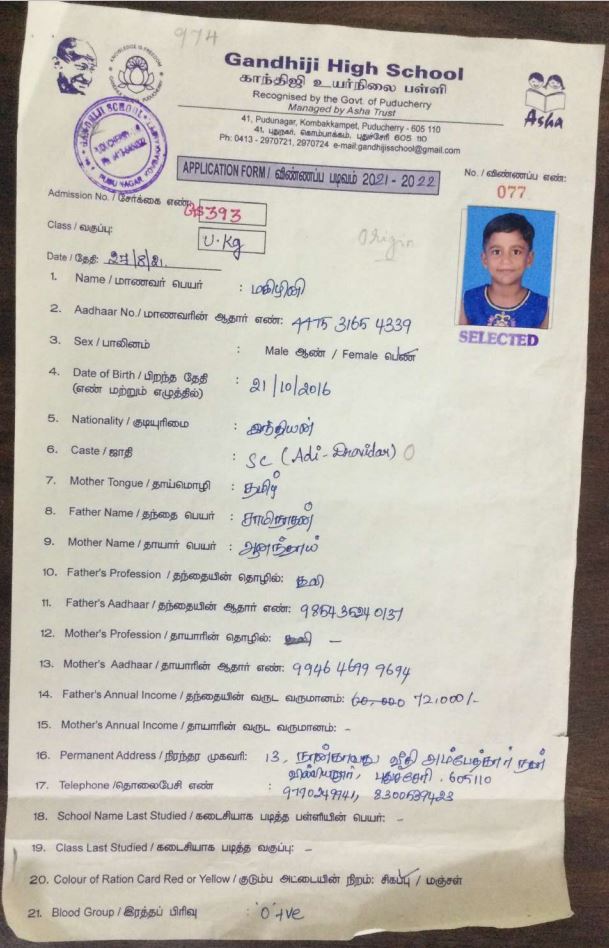 974
Gandhiji High School
காந்திஜி உயர்நிலை பள்ளி
Recognised by the Govt. of Puducherry
Managed by Asha Trust
41, Pudunagar, Kombakkampet, Puducherry - 605 110
41, புதுநகர், கொம்பாக்கம்பேட், புதுச்சேரி 605 110
Ph: 0413 - 2970721, 2970724 e-mail.gandhijisschool@gmail.com
Asha
APPLICATION FORM / விண்ணப்ப படிவம் 2021 - 2022
No. / விண்ணப்ப எண்:
077
Admission No. / சேர்க்கை எண்: 393
Class / வகுப்பு: U.Kg
Origin
Date / தேதி: 27/8/21.
SELECTED
1. Name / மாணவர் பெயர் : மகிழினி
2. Aadhaar No./ மாணவரின் ஆதார் எண்: 4475 3165 4339
3. Sex / பாலினம் : Male ஆண் / Female பெண்
4. Date of Birth / பிறந்த தேதி : 21/10/2016
(எண் மற்றும் எழுத்தில்)
5. Nationality / குடியுரிமை : இந்தியன்
6. Caste / ஜாதி : SC (Adi-Dravidar)
7. Mother Tongue / தாய்மொழி : தமிழ்
8. Father Name / தந்தை பெயர் : சாமிநாதன்
9. Mother Name / தாயார் பெயர் :
10. Father's Profession / தந்தையின் தொழில்:
11. Father's Aadhaar / தந்தையின் ஆதார் எண்:
12. Mother's Profession / தாயாரின் தொழில்: -
13. Mother's Aadhaar / தாயாரின் ஆதார் எண்: 9946 4699 9694
14. Father's Annual Income / தந்தையின் வருட வருமானம்: 60,000 72,000/-
15. Mother's Annual Income / தாயாரின் வருட வருமானம்: -
16. Permanent Address / நிரந்தர முகவரி: 13, நான்காவது வீதி அம்பேத்கார் நகர்
புதுச்சேரி . 605110
17. Telephone /தொலைபேசி எண் : 8300539423
18. School Name Last Studied / கடைசியாக படித்த பள்ளியின் பெயர்: -
19. Class Last Studied / கடைசியாக படித்த வகுப்பு: -
20. Colour of Ration Card Red or Yellow / குடும்ப அட்டையின் நிறம்: சிகப்பு / மஞ்சள்
21. Blood Group / இரத்தப் பிரிவு : 'O'+ve